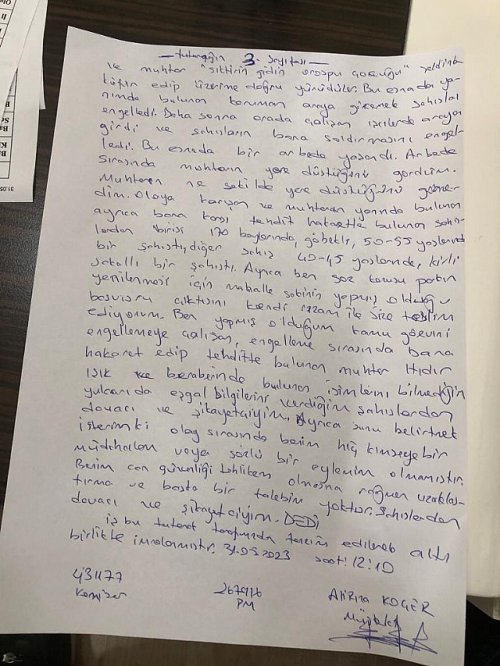 — tutanağın 3. sayfası —
ve muhtar "siktirin gidin orospu çocuğu" şeklinde
küfür edip üzerime doğru yürüdüler. Bu esnada ya-
nımda bulunan korumam araya girerek şahısları
engelledi. Daha sonra orada çalışan işçilerde araya
girdi ve şahısların bana saldırmasını engel-
ledi. Bu esnada bir arbede yaşandı. Arbede
sırasında muhtarın yere düştüğünü gördüm.
Muhtarın ne şekilde yere düştüğünü görme-
dim. Olaya karışan ve muhtarın yanında bulunan
ayrıca bana karşı tehdit hakarette bulunan şahıs-
lardan birisi 170 boylarında, göbekli, 50-55 yaşlarında
bir şahıstı, diğer şahıs 40-45 yaşlarında, kirli
sakallı bir şahıstı. Ayrıca ben söz konusu parkın
yenilenmesi için mahalle sakinin yapmış olduğu
başvuru çıktısını kendi rızam ile size teslim
ediyorum. Ben yapmış olduğum kamu görevini
engellemeye çalışan, engelleme sırasında bana
hakaret edip tehditte bulunan muhtar Hıdır
Işık ve beraberinde bulunan isimlerini bilmediğim
yukarıda eşgal bilgilerini verdiğim şahıslardan
davacı ve şikayetçiyim. Ayrıca şunu belirtmek
isterimki olay sırasında benim hiç kimseye bir
müdahalem veya sözlü bir eylemim olmamıştır.
Benim can güvenliği tehlikem olmasına rağmen uzaklaş-
tırma ve başka bir talebim yoktur. Şahıslardan
davacı ve şikayetçiyim. DEDİ
iş bu tutanak tarafımızdan tanzim edilerek altı
birlikte imzalanmıştır. 31.03.2023 saat: 12:10
431177
Komiser
PM
Alirıza KOÇER
Müşteki